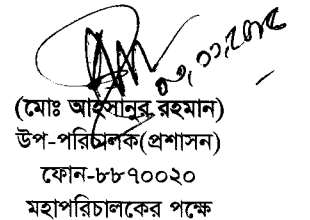 (মোঃ আহসানুর রহমান)
উপ-পরিচালক(প্রশাসন)
ফোন-৮৮৭০০২০
মহাপরিচালকের পক্ষে